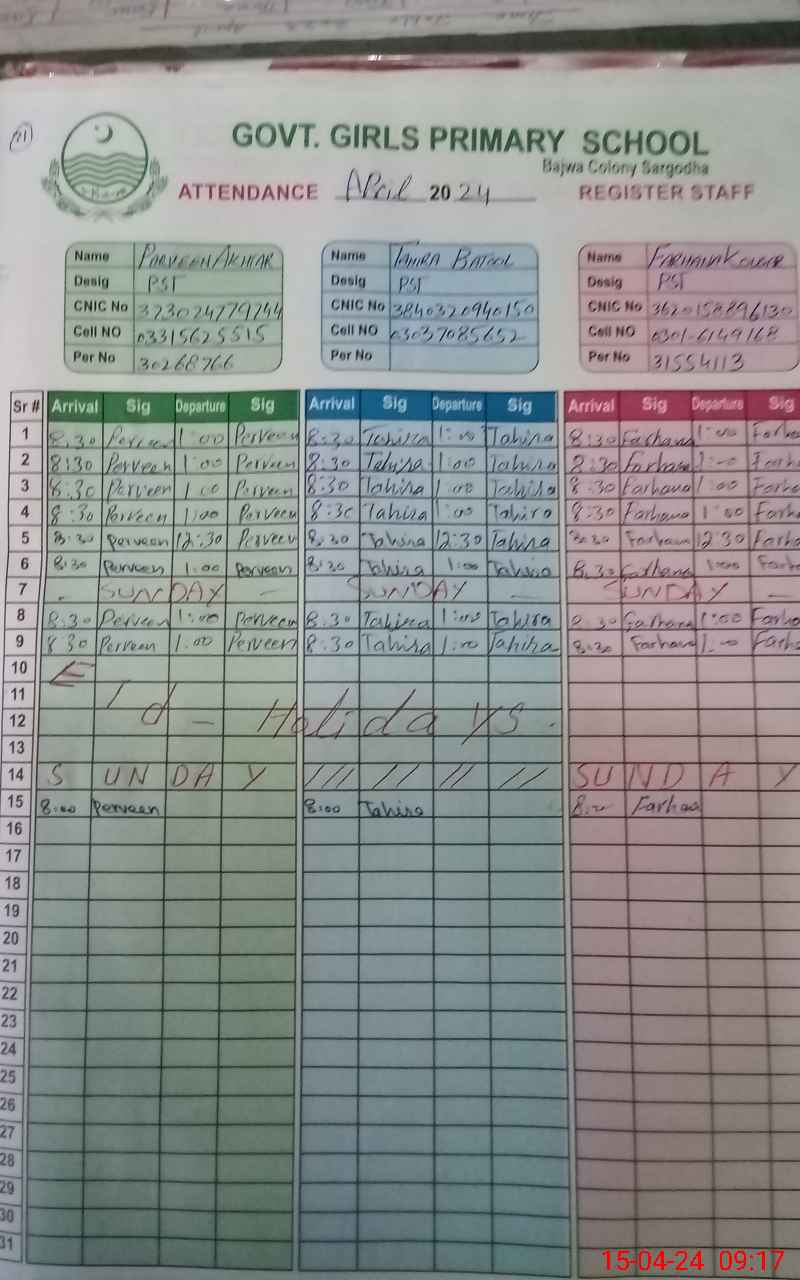 GOVT. GIRLS PRIMARY SCHOOL
Bajwa Colony Sargodha
ATTENDANCE April 2024 REGISTER STAFF
Name PARVEEN AKHTAR Name TAHIRA BATOOL Name FARHANA KOUSAR
Desig PST Desig PST Desig PST
CNIC No 3730247797 CNIC No 3840320940150 CNIC No 3620158896130
Cell NO 03315625515 Cell NO 03037085652 Cell No 0301-6149168
Per No 30268766 Per No Per No 31554113
Sr # Arrival Sig Departure Sig Arrival Sig Departure Sig Arrival Sig Departure Sig
1 8:30 Perveen 1:00 Perveen 8:30 Tahira 1:00 Tahira 8:30 Farhana 1:00 Farha
2 8:30 Perveen 1:00 Perveen 8:30 Tahira 1:00 Tahira 8:30 Farhana 1:00 Farh
3 8:30 Perveen 1:00 Perveen 8:30 Tahira 1:00 Tahira 8:30 Farhana 1:00 Farha
4 8:30 Perveen 1:00 Perveen 8:30 Tahira 1:00 Tahira 8:30 Farhana 1:00 Farh
5 8:30 Perveen 12:30 Perveen 8:30 Tahira 12:30 Tahira 8:30 Farhana 12:30 Farha
6 8:30 Perveen 1:00 Perveen 8:30 Tahira 1:00 Tahira 8:30 Farhana 1:00 Farha
7 - SUNDAY - SUNDAY - SUNDAY -
8 8:30 Perveen 1:00 Perveen 8:30 Tahira 1:00 Tahira 8:30 Farhana 1:00 Farha
9 8:30 Perveen 1:00 Perveen 8:30 Tahira 1:00 Tahira 8:30 Farhana 1:00 Farha
10
11 EId - Holidays.
12
13
14 SUNDAY /// // // // SUNDAY
15 8:00 Perveen 8:00 Tahira 8:00 Farhaa
16
17
18
19
20
21
22
23
24
25
26
27
28
29
30
31
15-04-24 09:17